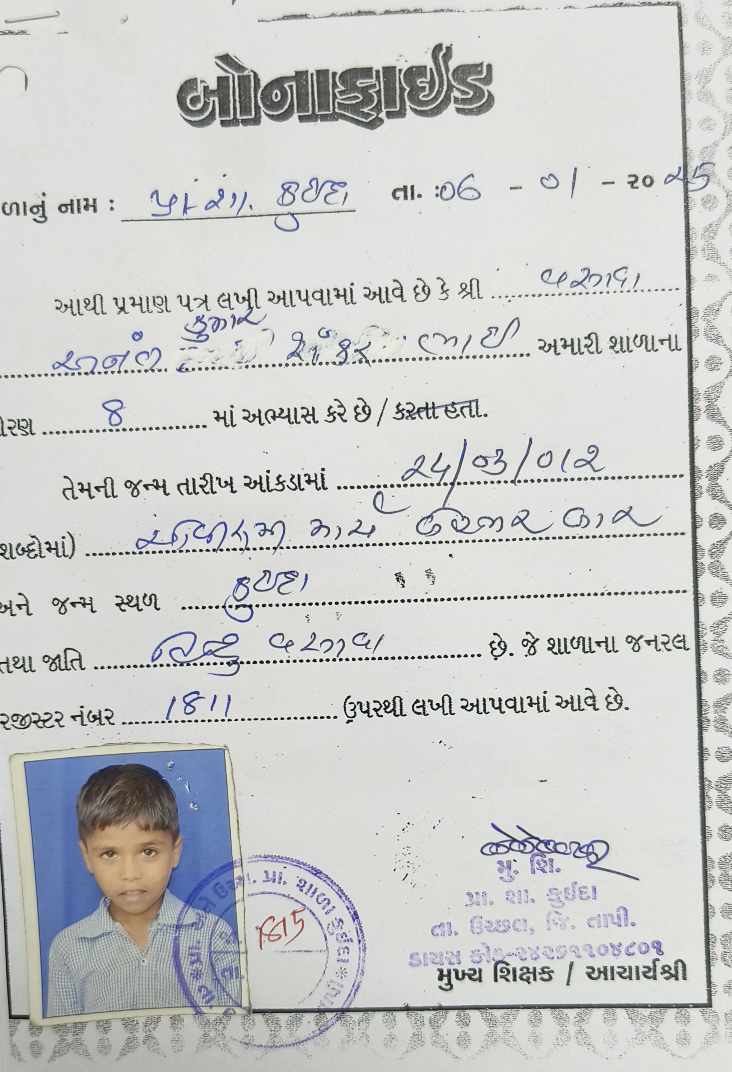 બોનાફાઈડ
ળાનું નામ : પ્રા. શા. કુઈદા તા. :06 - 01 - ૨૦ ૨5
આથી પ્રમાણ પત્ર લખી આપવામાં આવે છે કે શ્રી વસાવા
કુમાર
ભાઈ અમારી શાળાના
ોરણ 8 માં અભ્યાસ કરે છે / કરતા હતા.
તેમની જન્મ તારીખ આંકડામાં ૨૫/૦૩/૦૧૨
શબ્દોમાં) માર્ચ બે હજાર બાર
અને જન્મ સ્થળ કુઈદા
તથા જાતિ હિન્દુ વસાવા છે. જે શાળાના જનરલ
રજીસ્ટર નંબર 1811 ઉપરથી લખી આપવામાં આવે છે.
મુ. શિ.
પ્રા. શા. કુઈદા
તા. ઉચ્છલ, જિ. તાપી.
ડાયસ કોડ-
મુખ્ય શિક્ષક / આચાર્યશ્રી
પ્રા. શાળા કુઈદા
1815